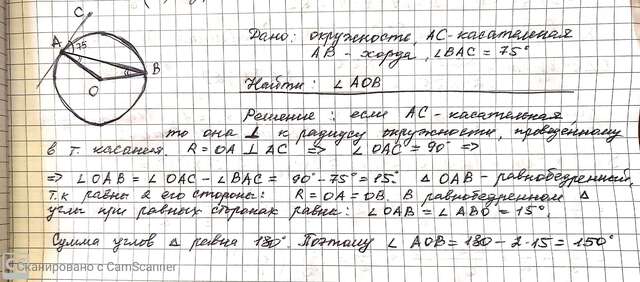 C
A 75
B
O
Дано: окружность, AC-касательная
AB - хорда, ∠BAC = 75°
Найти: ∠AOB
Решение: если AC-касательная
то она ⊥ к радиусу окружности, проведённому
в т. касания. R = OA ⊥ AC => ∠OAC = 90° =>
=> ∠OAB = ∠OAC - ∠BAC = 90° - 75° = 15° Δ OAB - равнобедренный,
т.к равны 2 его стороны: R = OA = OB. В равнобедренном Δ
углы при равных сторонах равны: ∠OAB = ∠ABO = 15°,
Сумма углов Δ равна 180°. Поэтому ∠ AOB = 180 - 2·15 = 150°
CS Сканировано с CamScanner